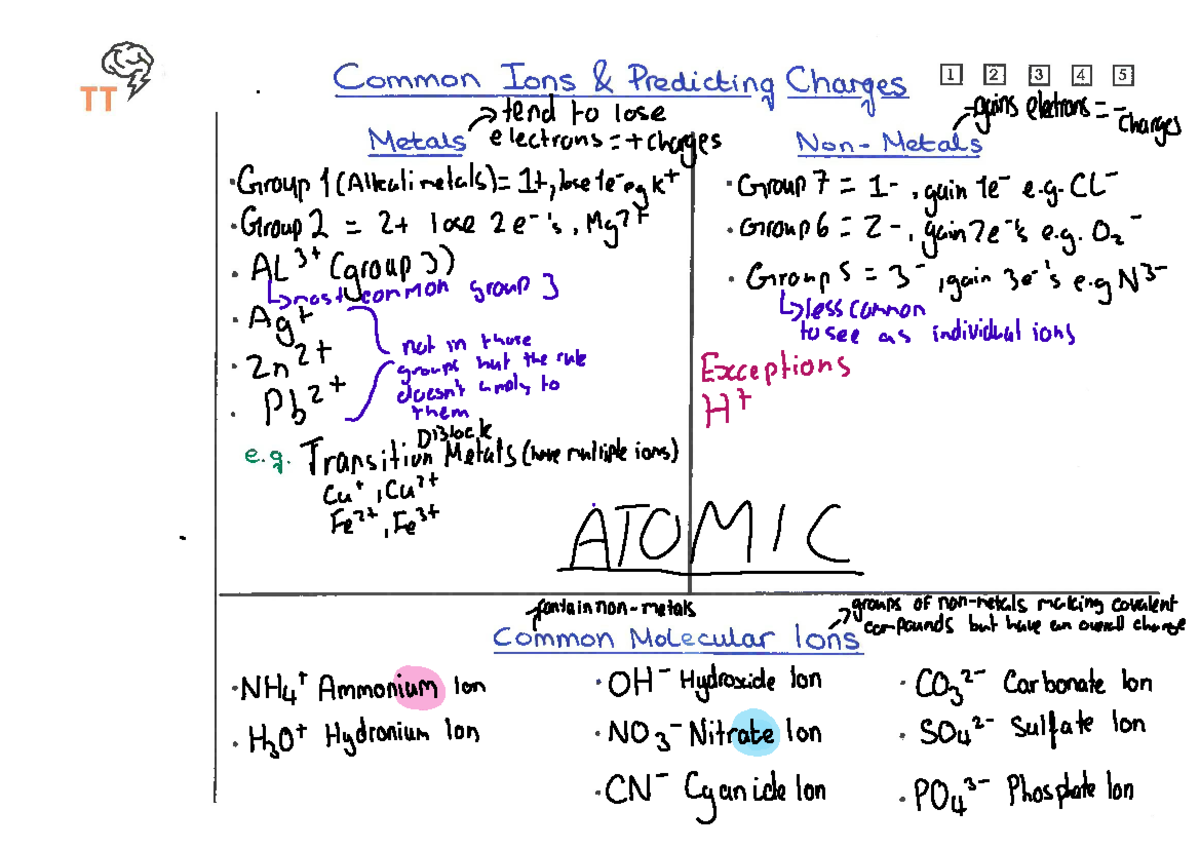 TT
Common Ions & Predicting Charges
1 2 3 4 5
Metals
→tend to lose
electrons = + charges
·Group 1 (Alkali metals) = 1+, lose 1e⁻ eg K⁺
·Group 2 = 2+ lose 2 e⁻'s, Mg²⁺
· AL³⁺ (group 3)
↳most common group 3
· Ag⁺
· Zn²⁺
· Pb²⁺
not in those
groups but the rule
doesn't apply to
them
D Block
e.g. Transition Metals (have multiple ions)
Cu⁺, Cu²⁺
Fe²⁺, Fe³⁺
Non-Metals
→gains eletrons = -
charges
·Group 7 = 1-, gain 1e⁻ e.g. CL⁻
·Group 6 = 2-, gain 2e⁻'s e.g. O₂⁻
· Group 5 = 3⁻, gain 3e⁻'s e.g N³⁻
↳less common
to see as individual ions
Exceptions
H⁺
ATOMIC
contain non-metals
Common Molecular Ions
→groups of non-metals making covalent
compounds but have an overall charge
·NH₄⁺ Ammonium Ion
· H₃O⁺ Hydronium Ion
·OH⁻ Hydroxide Ion
·NO₃⁻ Nitrate Ion
·CN⁻ Cyanide Ion
· CO₃²⁻ Carbonate Ion
· SO₄²⁻ Sulfate Ion
·PO₄³⁻ Phosphate Ion